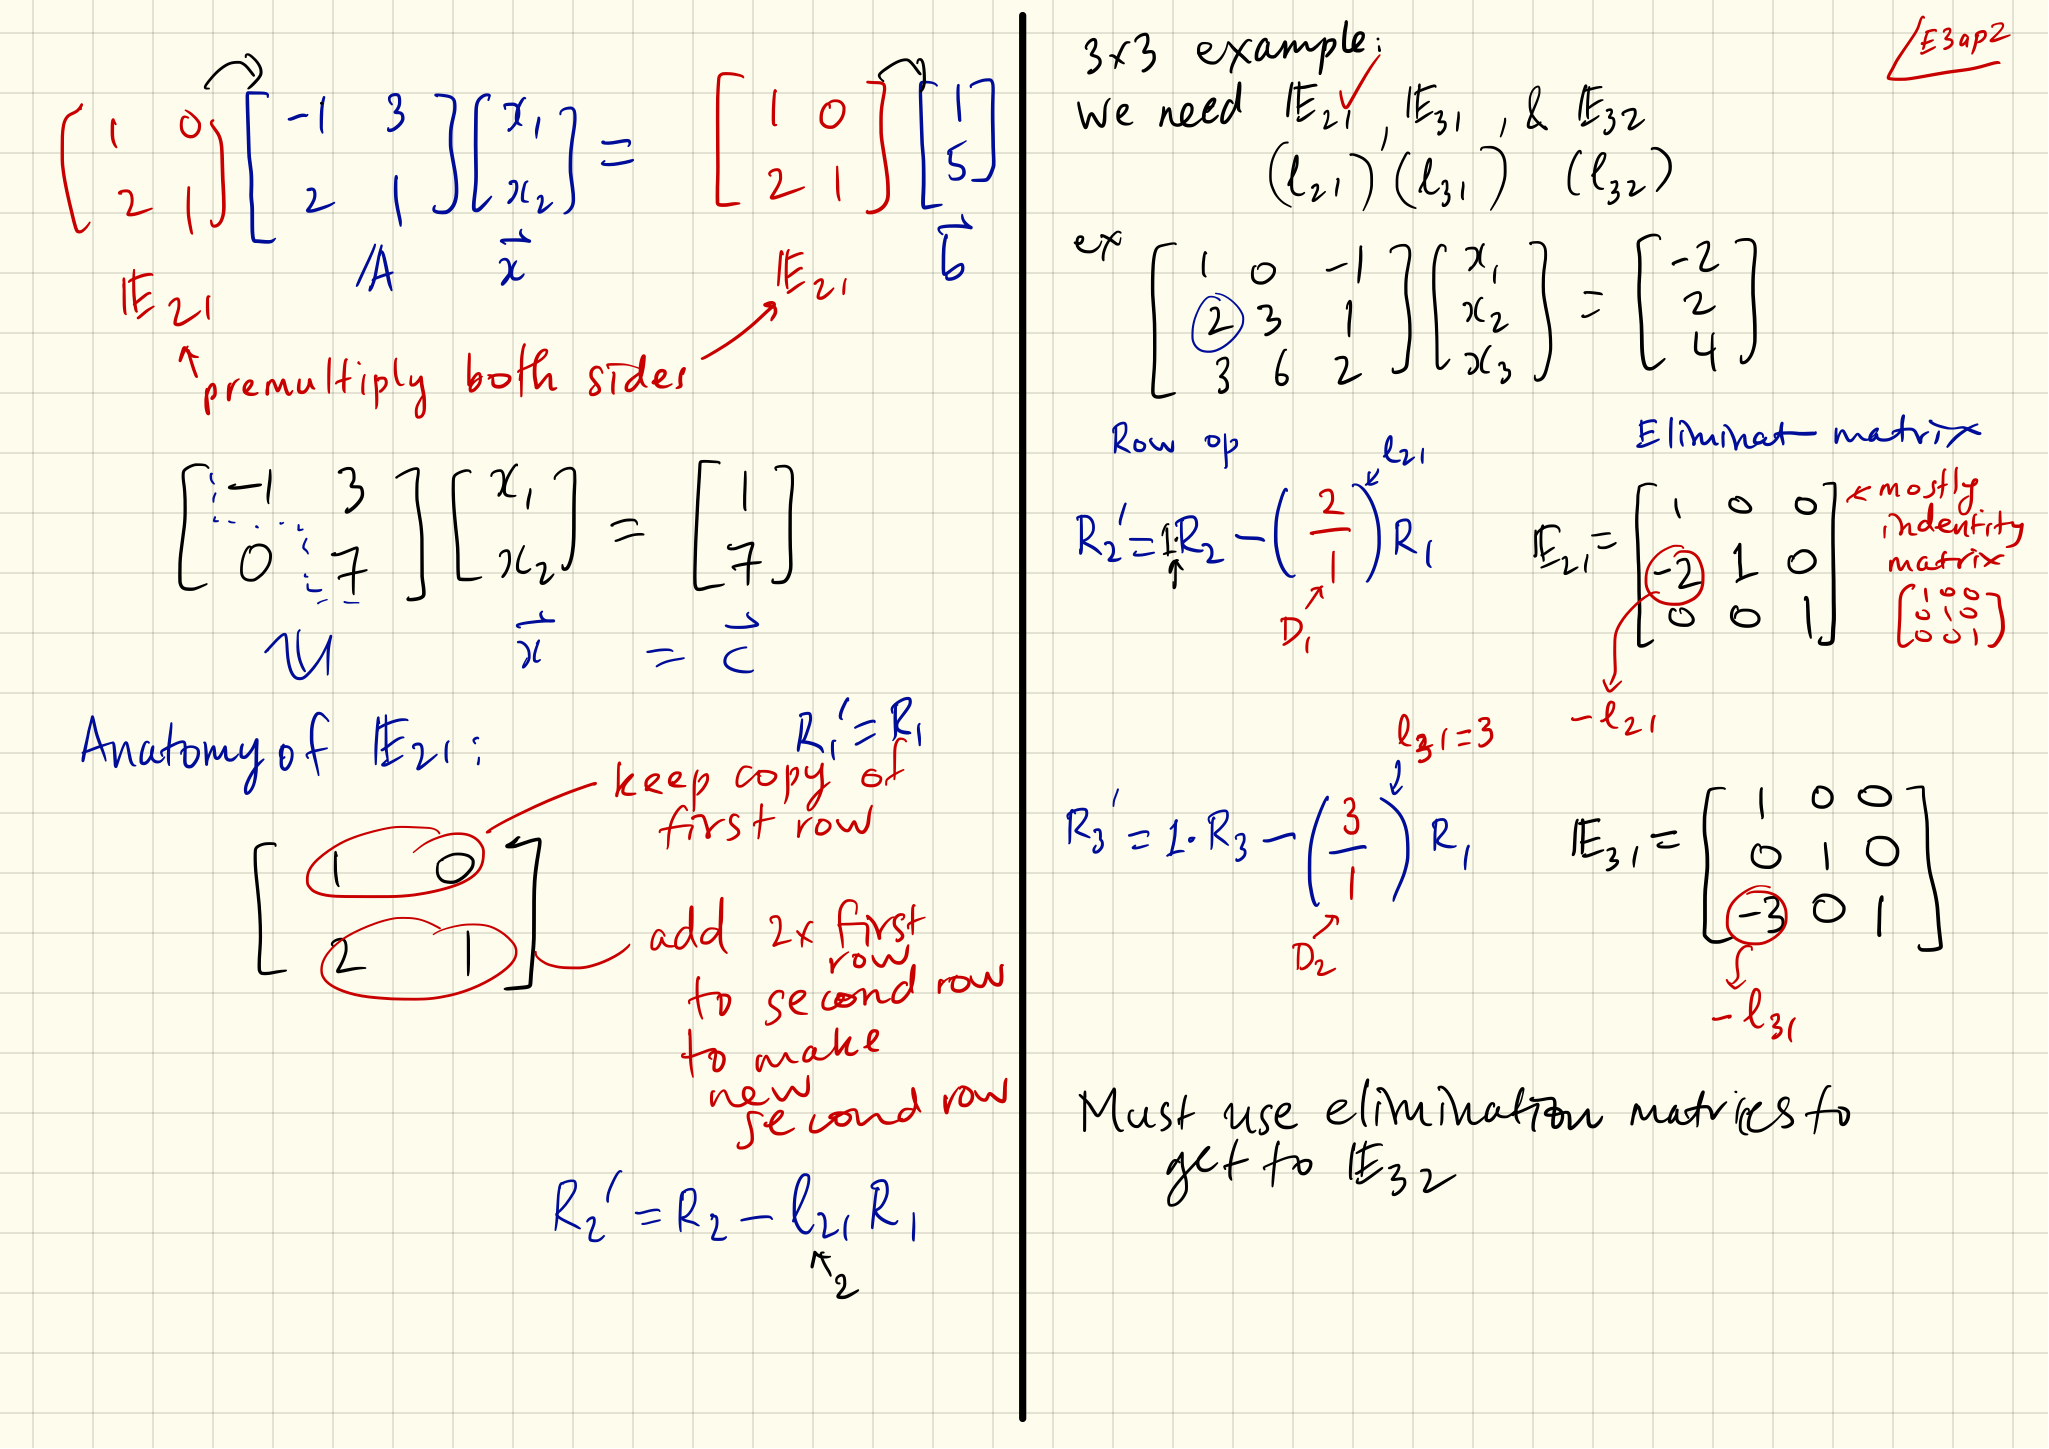 [1 0; 2 1] [-1 3; 2 1] [x₁; x₂] = [1 0; 2 1] [1; 5]
𝔼₂₁ 𝔸 x⃗ 𝔼₂₁ b⃗
premultiply both sides
[-1 3; 0 7] [x₁; x₂] = [1; 7]
𝕌 x⃗ = c⃗
Anatomy of 𝔼₂₁:
R₁' = R₁
keep copy of
first row
[1 0; 2 1]
add 2x first
row
to second row
to make
new
second row
R₂' = R₂ - l₂₁ R₁
2
E3ap2
3x3 example:
We need 𝔼₂₁ ✓, 𝔼₃₁, & 𝔼₃₂
(l₂₁) (l₃₁) (l₃₂)
ex [1 0 -1; 2 3 1; 3 6 2] [x₁; x₂; x₃] = [-2; 2; 4]
Row op
Eliminat matrix
l₂₁
R₂' = 1·R₂ - (2/1) R₁
D₁
𝔼₂₁ = [1 0 0; -2 1 0; 0 0 1]
mostly
indentity
matrix
[1 0 0; 0 1 0; 0 0 1]
-l₂₁
l₃₁ = 3
R₃' = 1·R₃ - (3/1) R₁
D₂
𝔼₃₁ = [1 0 0; 0 1 0; -3 0 1]
-l₃₁
Must use elimination matrices to
get to 𝔼₃₂